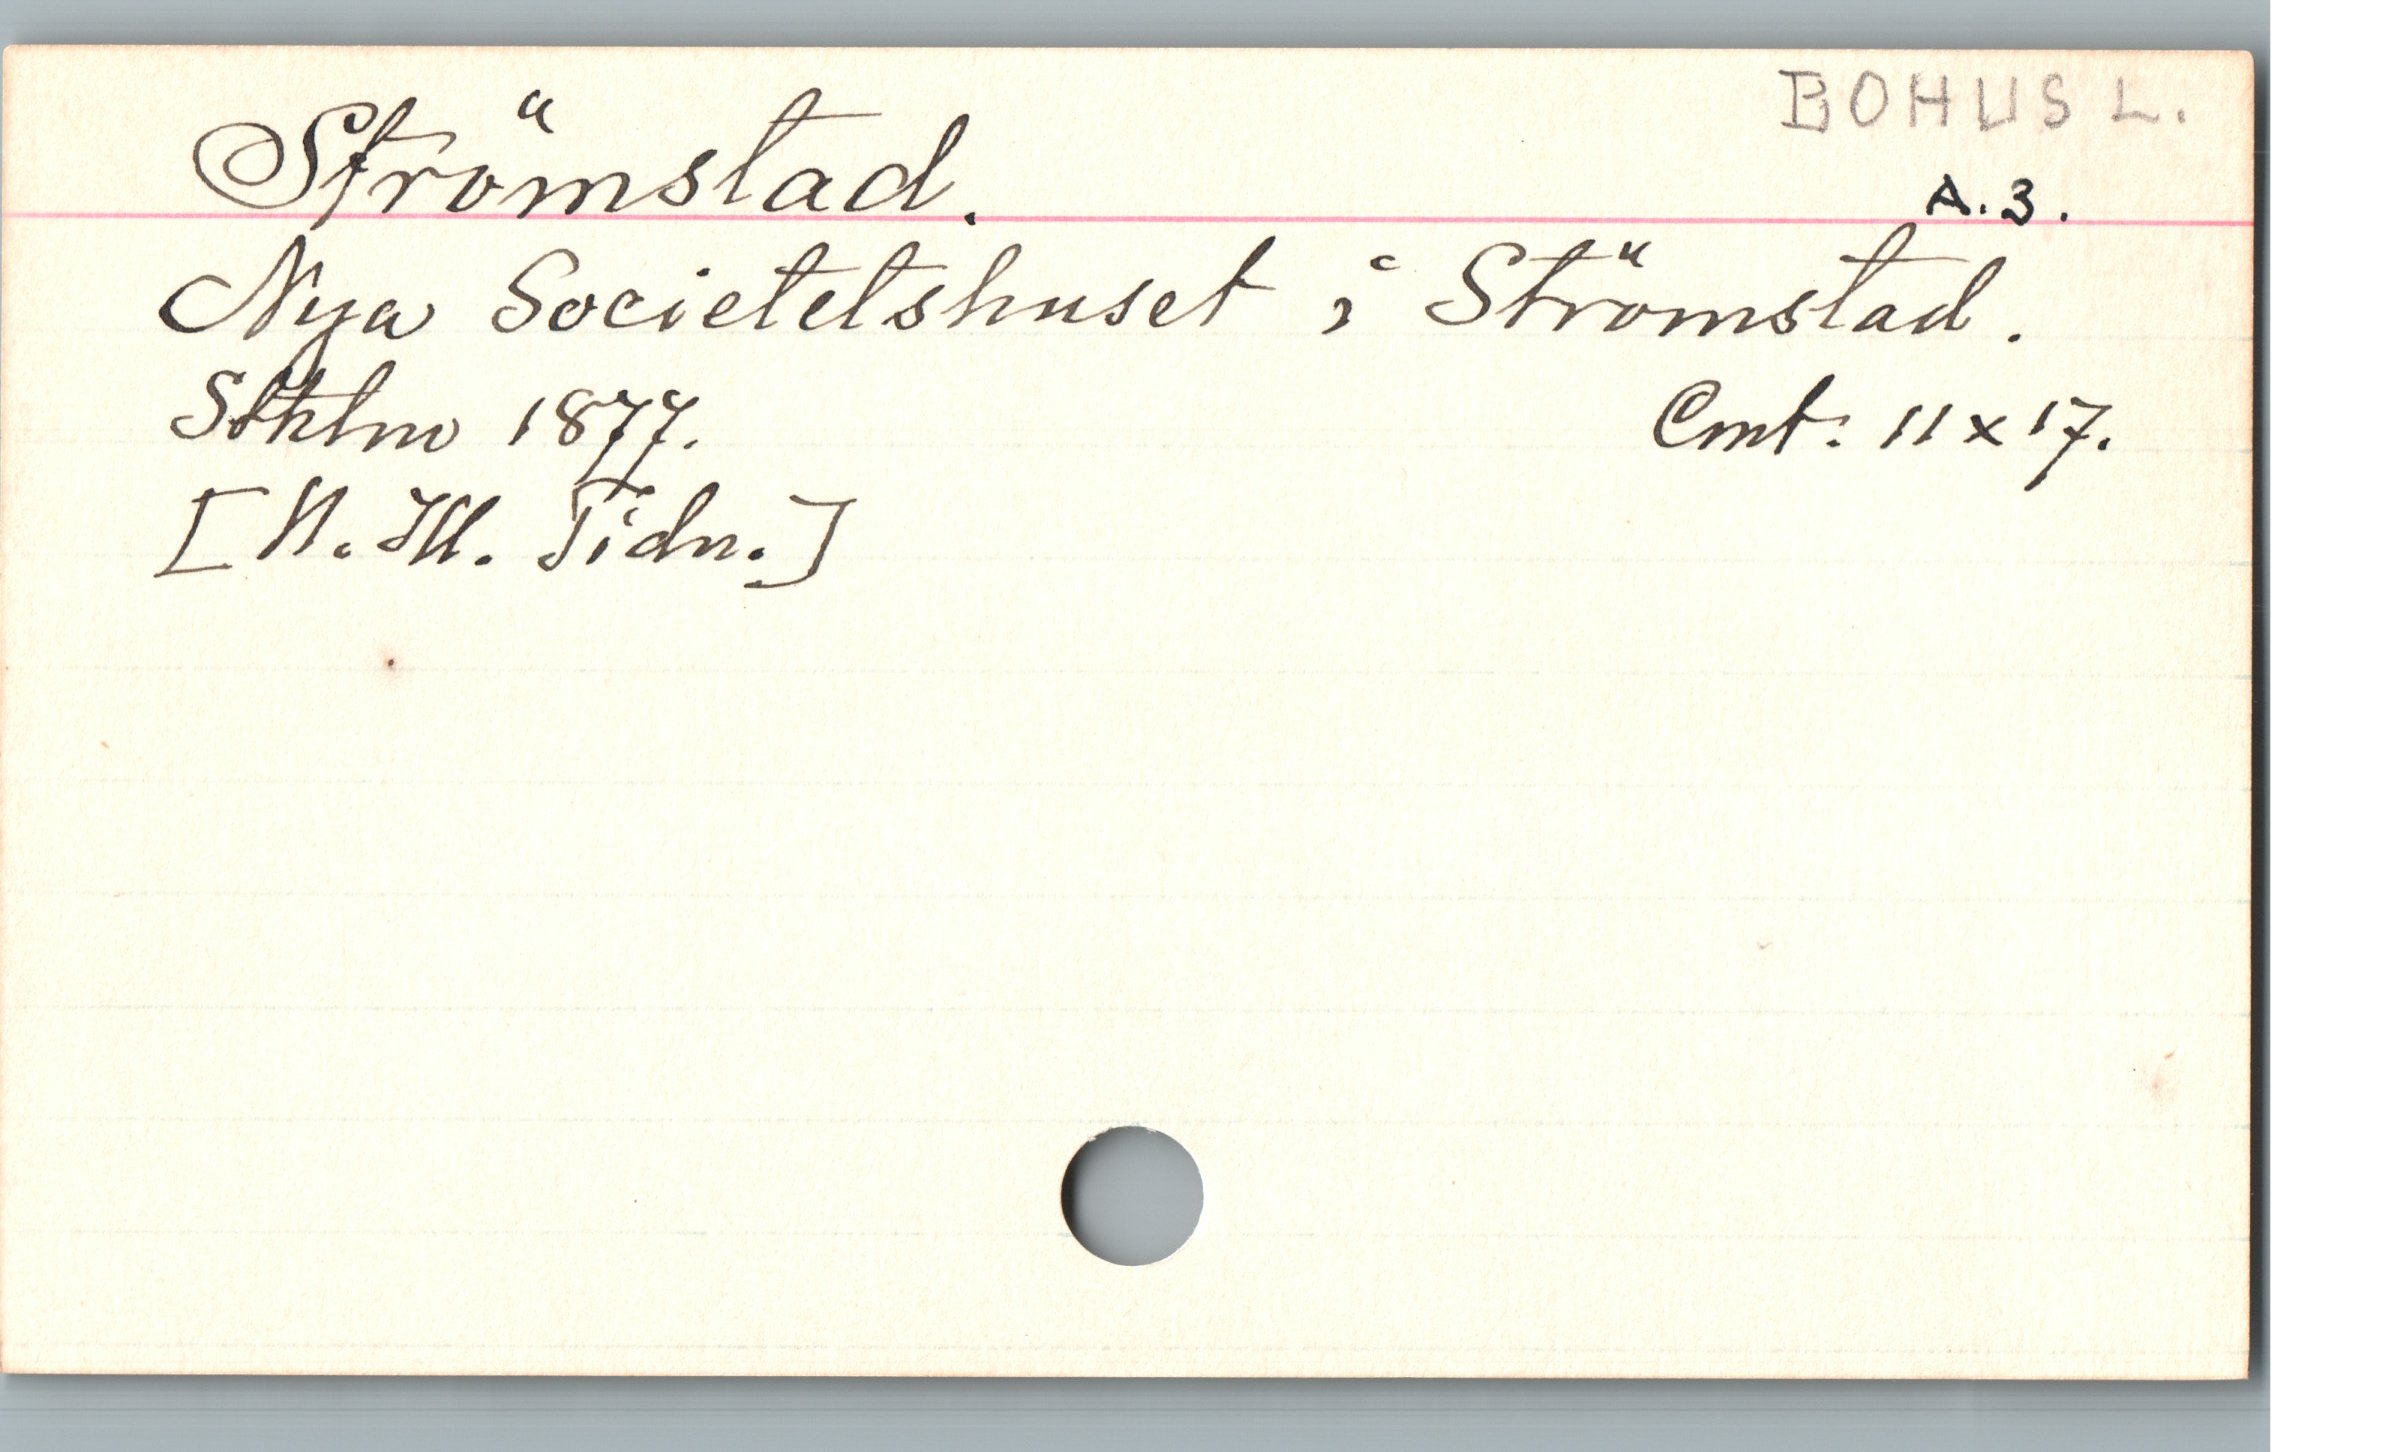 BOHUS L.
Strömstad.
A. 3.
Nya Societetshuset i Strömstad.
Sthlm 1877. Cmt: 11 x 17.
[N. Ill. Tidn.]